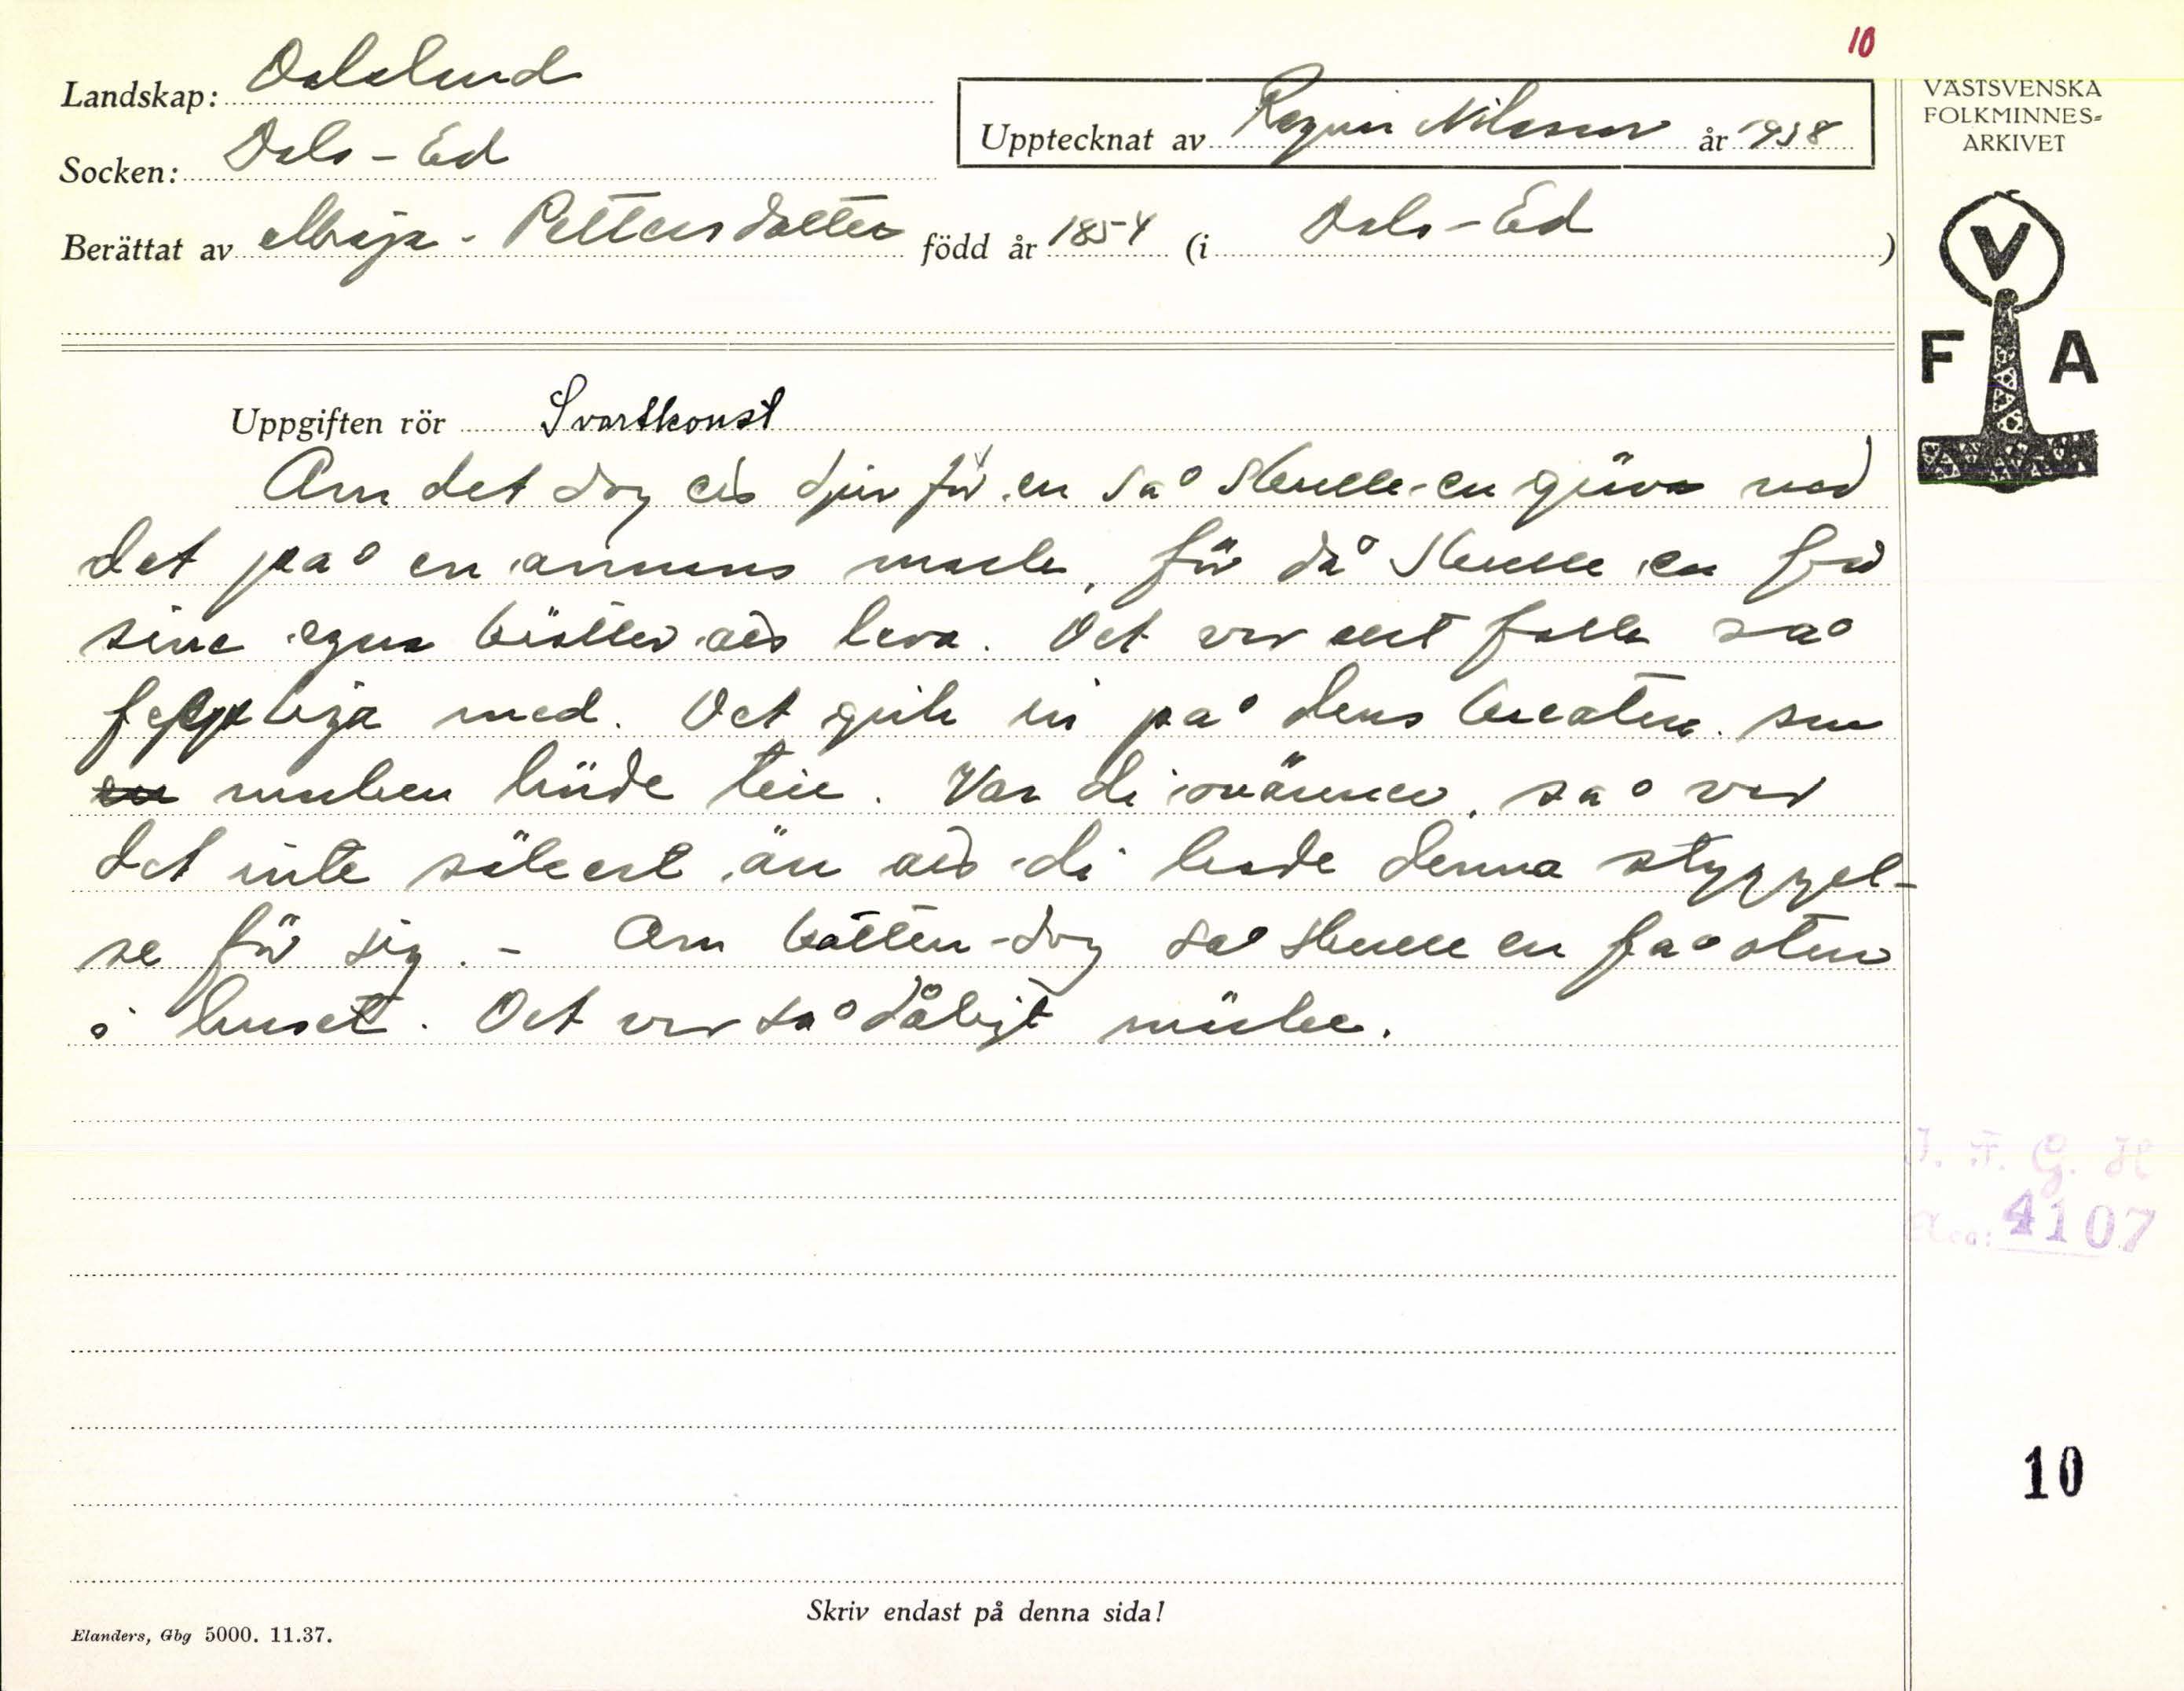 10
Landskap: Dalsland
Upptecknat av Ragnar Nilsson år 1938
VÄSTSVENSKA
FOLKMINNES-
ARKIVET
Socken: Dals-Ed
Berättat av Maja Pettersdotter född år 1854 (i Dals-Ed)
V
F A
Uppgiften rör Svartkonst
Om det dog ett djur för en så skulle en gräva ned
det på en annans mark, för då skulle en få
sine egna krötter att leva. Det var allt folk så
höllja med. Det gick in på dens kreatur som
marken hörde teie. Var di ovänner, så var
det inte säkert än att di hade denna styggel-
se för sig. - Om katten dog så skulle en få otur
i huset. Det var så dåligt märke.
4107
10
Skriv endast på denna sida!
Elanders, Gbg 5000. 11.37.